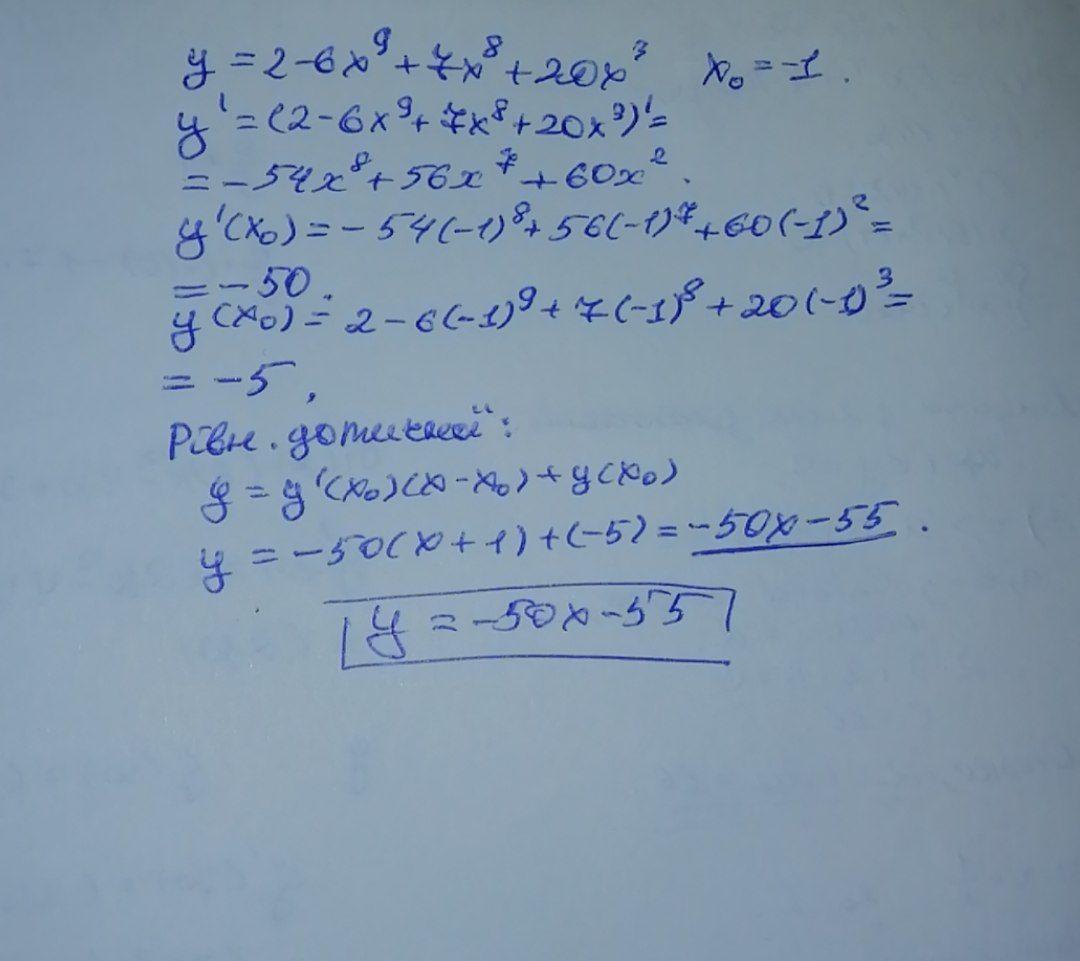 y = 2-6x⁹+7x⁸+20x³ x₀ = -1.
y' = (2-6x⁹+7x⁸+20x³)' =
= -54x⁸+56x⁷+60x².
y'(x₀) = -54(-1)⁸+56(-1)⁷+60(-1)² =
= -50.
y(x₀) = 2-6(-1)⁹+7(-1)⁸+20(-1)³ =
= -5,
Рівн. дотичної:
y = y'(x₀)(x-x₀)+y(x₀)
y = -50(x+1)+(-5) = -50x-55.
y = -50x-55